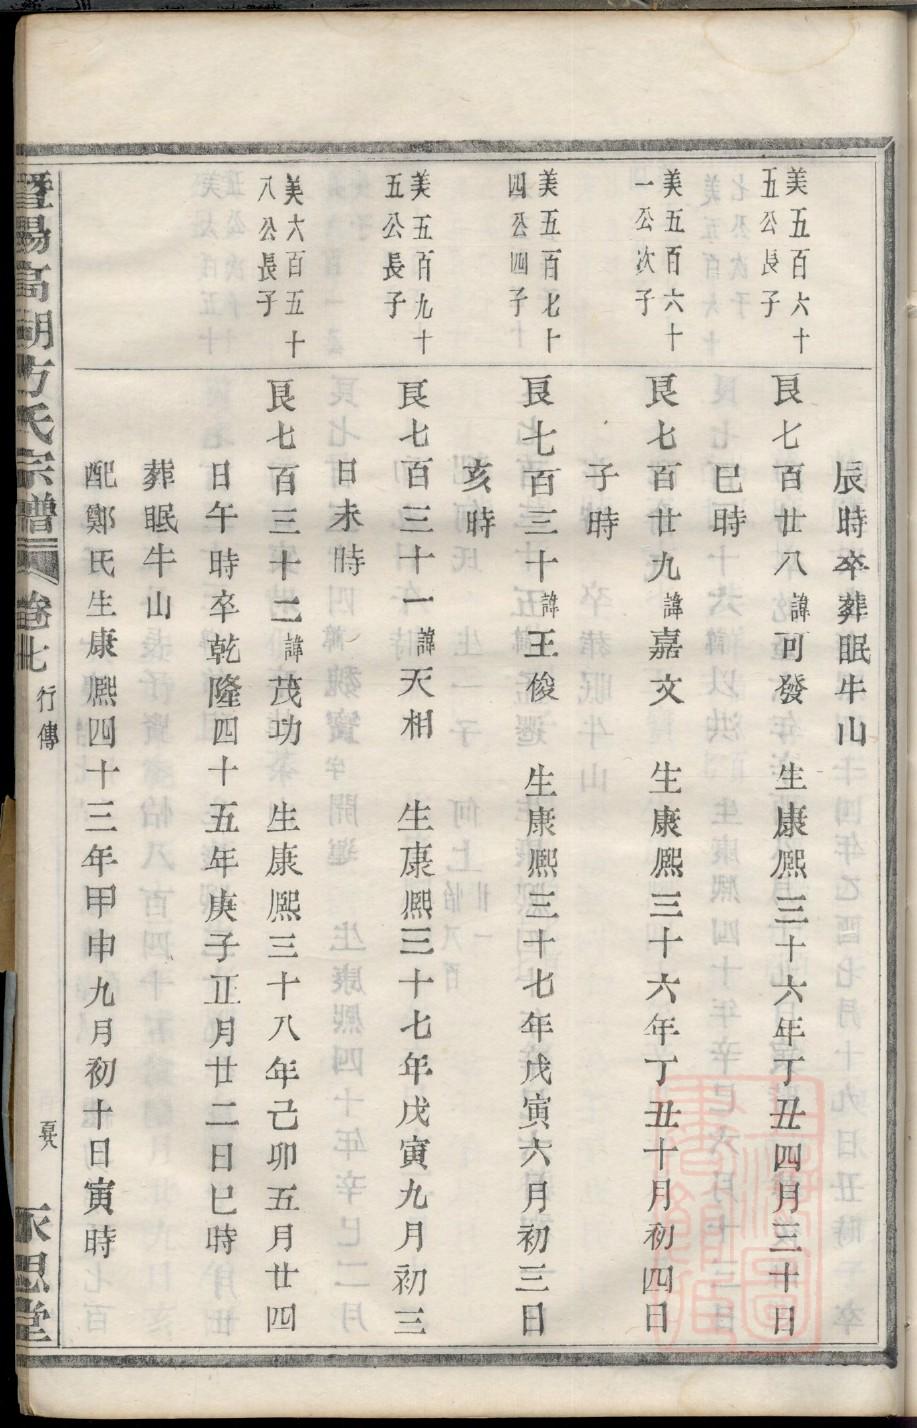 辰時卒葬眠牛山
美五百六十
五公長子
艮七百廿八諱可發 生康熙三十六年丁丑四月三十日
巳時
美五百六十
一公次子
艮七百廿九諱嘉文 生康熙三十六年丁丑十月初四日
子時
美五百七十
四公四子
艮七百三十諱王俊 生康熙三十七年戊寅六月初三日
亥時
美五百九十
五公長子
艮七百三十一諱天相 生康熙三十七年戊寅九月初三
日未時
美六百五十
八公長子
艮七百三十二諱茂功 生康熙三十八年己卯五月廿四
日午時卒乾隆四十五年庚子正月廿二日巳時
葬眠牛山
配鄭氏生康熙四十三年甲申九月初十日寅時
暨陽高湖方氏宗譜 卷七 行傳 永思堂